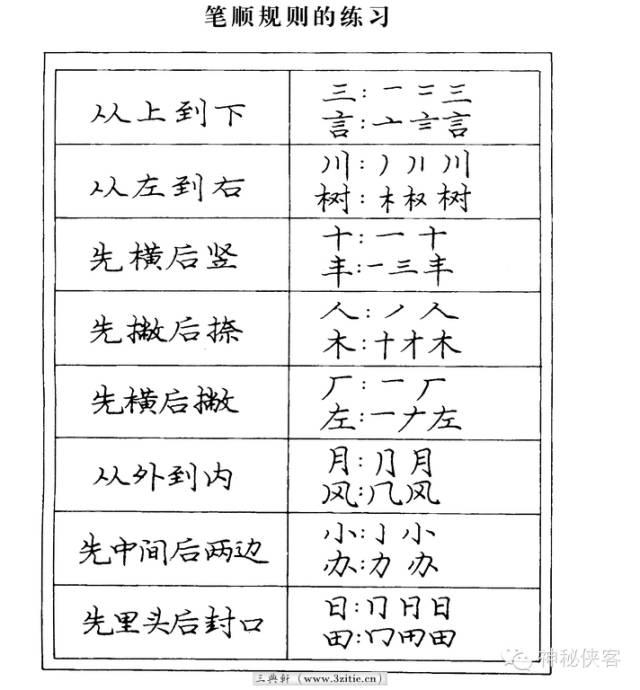 笔顺规则的练习
从上到下
三:一二三
言:亠亖言
从左到右
川:丿丿丨川
树:木权树
先横后竖
十:一十
丰:一三丰
先撇后捺
人:丿人
木:十才木
先横后撇
厂:一厂
左:一𠂇左
从外到内
月:⺆月
风:几风
先中间后两边
小:亅小
办:力办
先里头后封口
日:冂日日
田:冂田田
神秘侠客
三典轩(www.3zitie.cn)